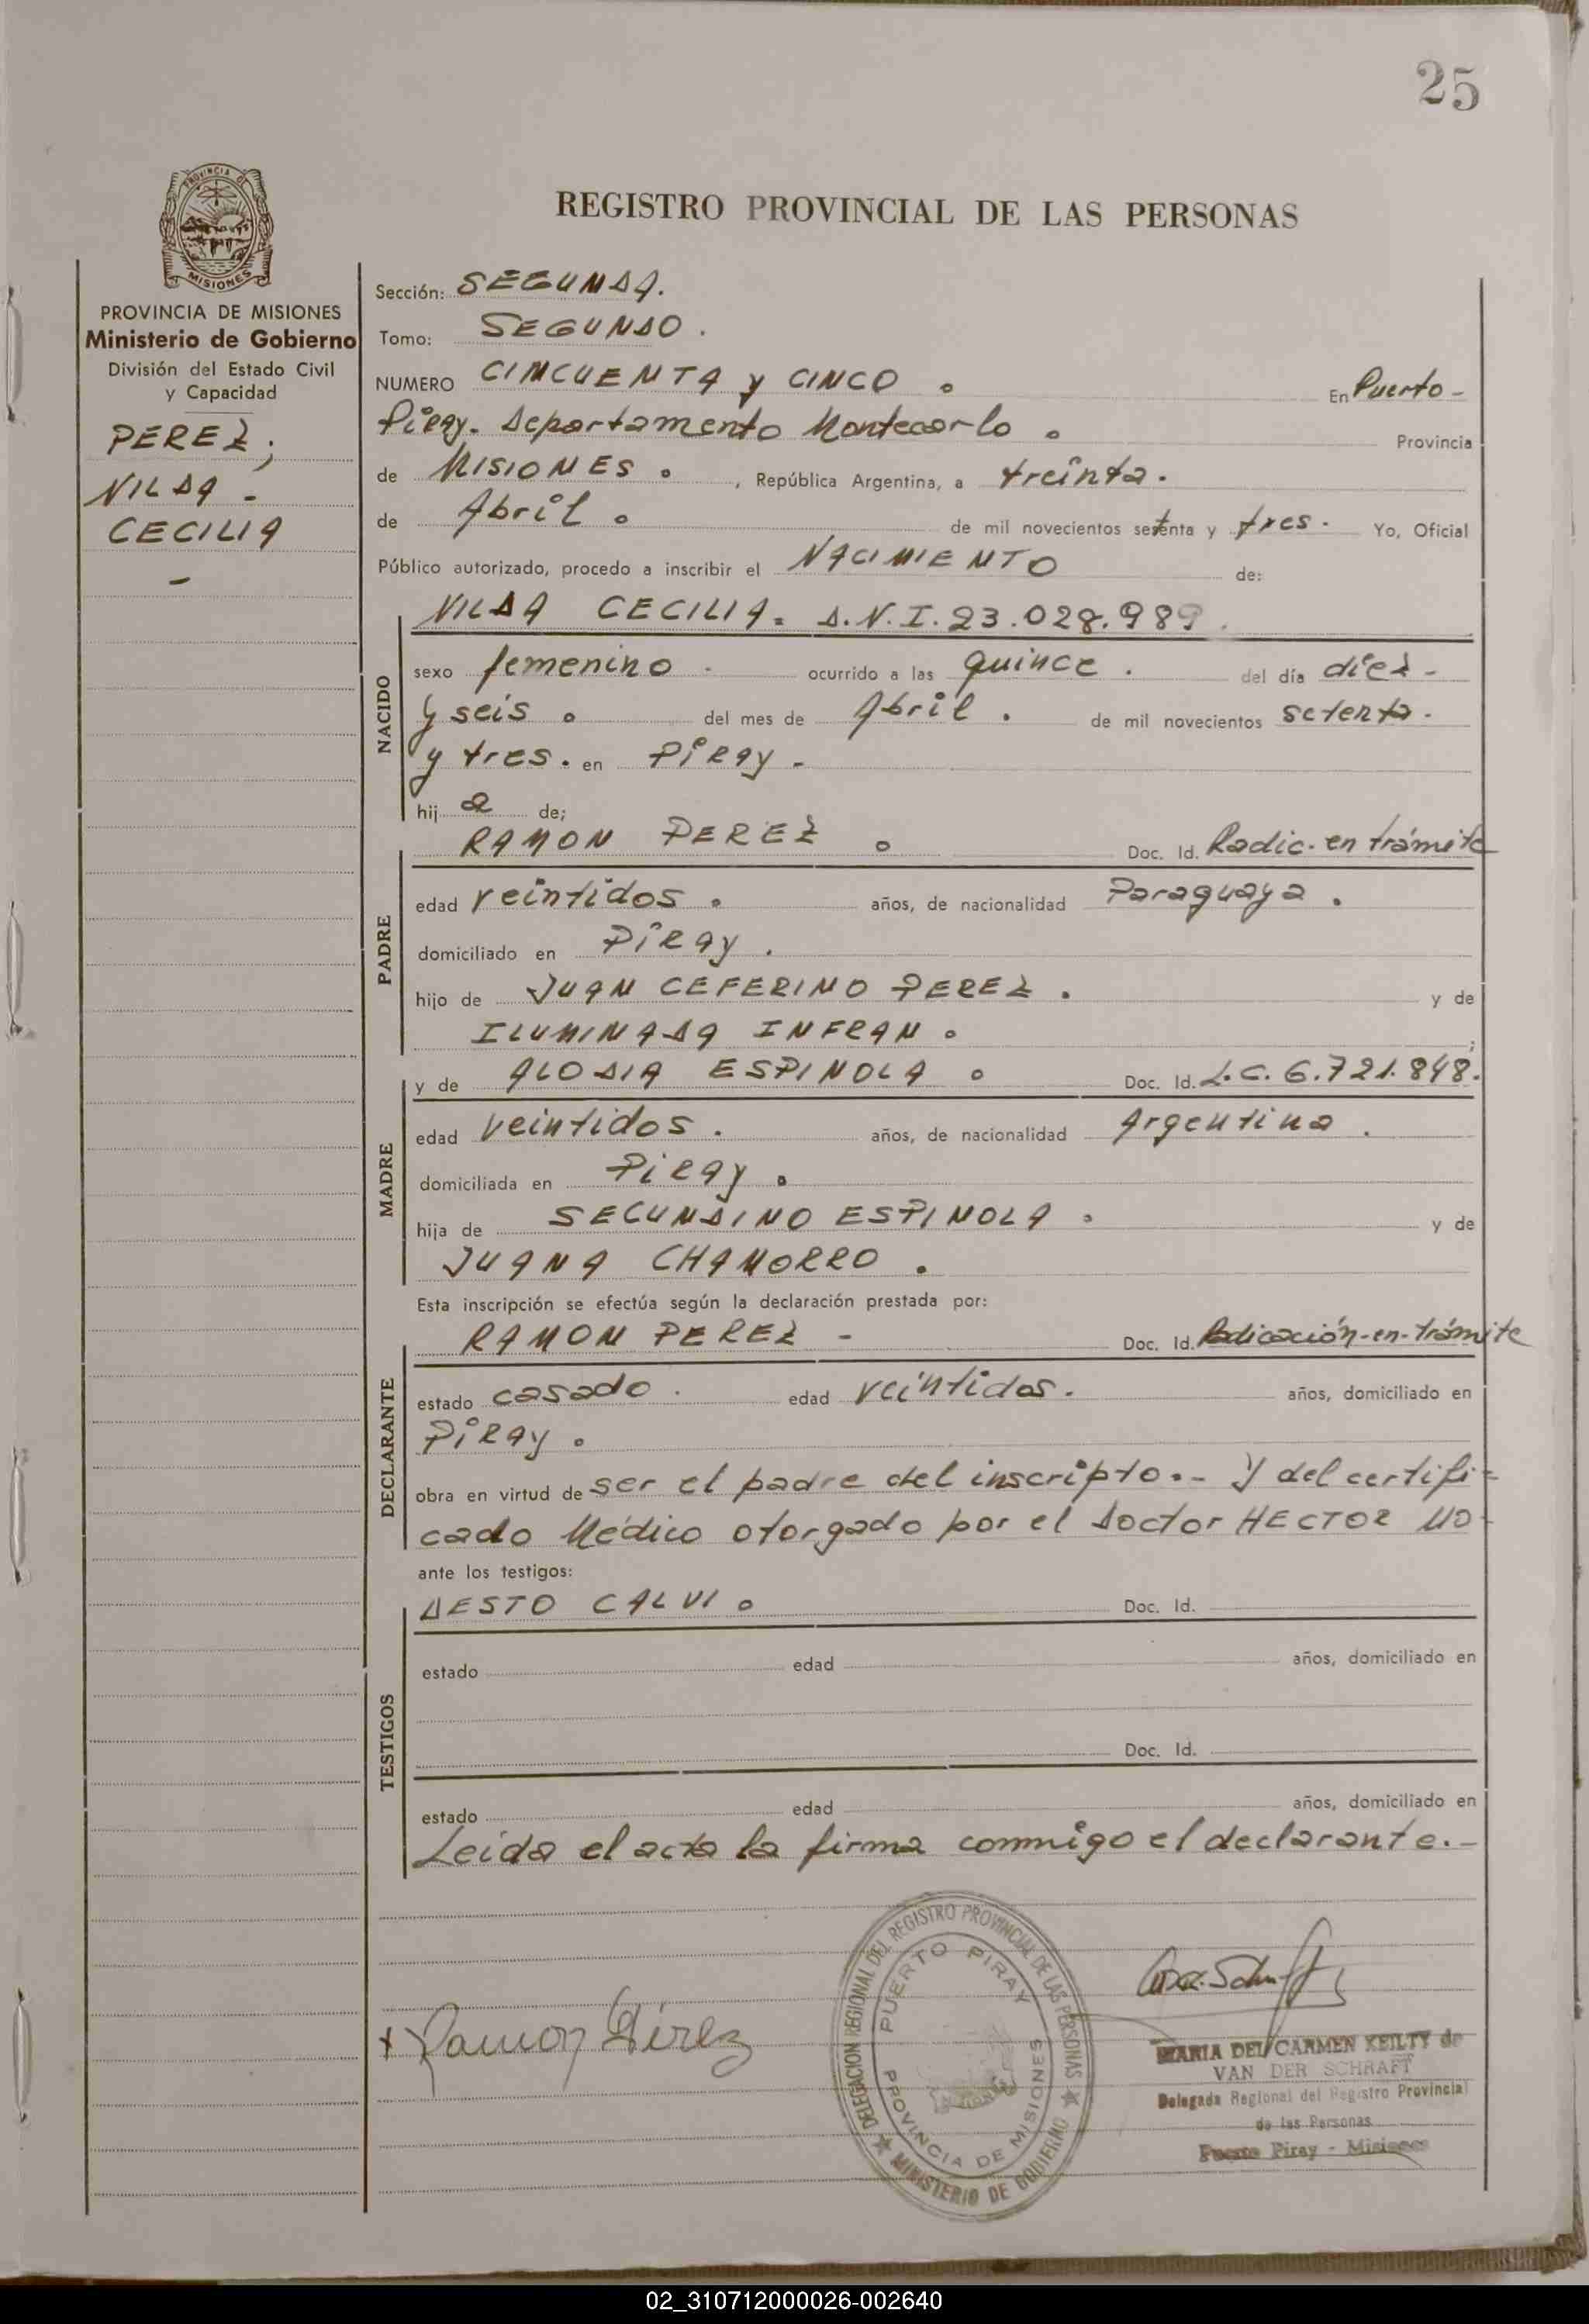 25
PROVINCIA DE
MISIONES
REGISTRO PROVINCIAL DE LAS PERSONAS
PROVINCIA DE MISIONES
Ministerio de Gobierno
División del Estado Civil
y Capacidad
PEREZ;
NILDA -
CECILIA
-
Sección: SEGUNDA.
Tomo: SEGUNDO.
NUMERO CINCUENTA y CINCO. En Puerto-
Piray. Departamento Montecarlo. Provincia
de MISIONES. , República Argentina, a treinta.
de Abril. de mil novecientos setenta y tres. Yo, Oficial
Público autorizado, procedo a inscribir el NACIMIENTO de:
NACIDO
NILDA CECILIA. D.N.I. 23.028.989.
sexo femenino. ocurrido a las quince. del día diez-
y seis. del mes de Abril. de mil novecientos setenta.
y tres. en Piray.
hij a de;
PADRE
RAMON PEREZ. Doc. Id. Radic. en trámite
edad veintidos. años, de nacionalidad Paraguaya.
domiciliado en Piray.
hijo de JUAN CEFERINO PEREZ. y de
ILUMINADA INFRAN. ;
MADRE
y de ALODIA ESPINOLA. Doc. Id. L.C. 6.721.848.
edad veintidos. años, de nacionalidad Argentina.
domiciliada en Piray.
hija de SECUNDINO ESPINOLA. y de
JUANA CHAMORRO.
Esta inscripción se efectúa según la declaración prestada por:
DECLARANTE
RAMON PEREZ - Doc. Id. Radicación-en-trámite
estado casado. edad veintidos. años, domiciliado en
Piray.
obra en virtud de ser el padre del inscripto.- Y del certifi-
cado Médico otorgado por el Doctor HECTOR MO-
ante los testigos:
TESTIGOS
DESTO CALVI. Doc. Id.
estado edad años, domiciliado en
Doc. Id.
estado edad años, domiciliado en
Leída el acta la firma conmigo el declarante.-
DELEGACION REGIONAL DEL REGISTRO PROVINCIAL DE LAS PERSONAS
MINISTERIO DE GOBIERNO
PUERTO PIRAY
PROVINCIA DE MISIONES
+ Ramon Pérez
MARIA DEL CARMEN KEILTY de
VAN DER SCHRAFT
Delegada Regional del Registro Provincial
de las Personas
Puerto Piray - Misiones
02_310712000026-002640